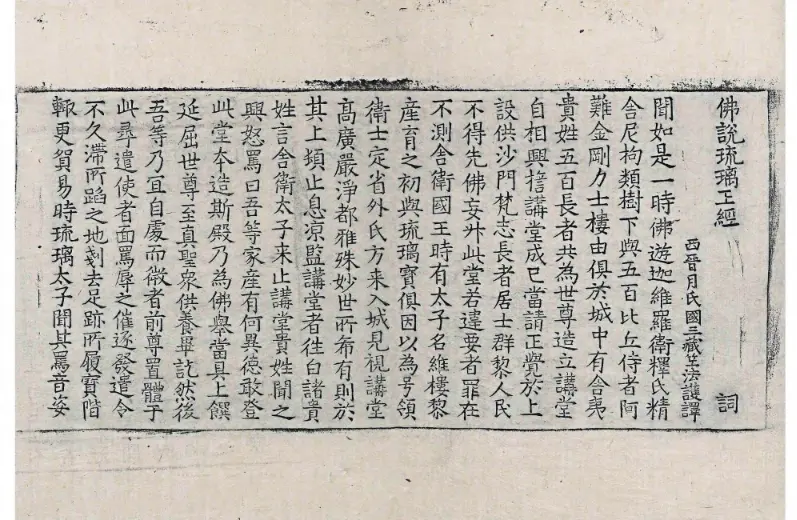 佛說琉璃王經
詞
西晉月氏國三藏竺法護譯
聞如是一時佛遊迦維羅衛釋氏精
舍尼拘類樹下與五百比丘侍者阿
難金剛力士樓由俱於城中有舍夷
貴姓五百長者共為世尊造立講堂
自相興擔講堂成已當請正覺於上
設供沙門梵志長者居士群黎人民
不得先佛妄升此堂若違要者罪在
不測舍衛國王時有太子名維樓黎
產育之初與琉璃寶俱因以為号領
衛士定省外氏方来入城見視講堂
高廣嚴淨都雅殊妙世所希有則於
其上頓止息凉監講堂者往白諸貴
姓言舍衛太子来止講堂貴姓聞之
興怒罵曰吾等家産有何異德敢登
此堂夲造斯殿乃為佛舉當具上饌
延屈世尊至真聖衆供養畢訖然後
吾等乃宜自處而微者前尊置體于
此尋遣使者面罵辱之催逐發遣令
不久滯所蹈之地剗去足跡所履寶階
輙更貿易時琉璃太子聞其罵音姿